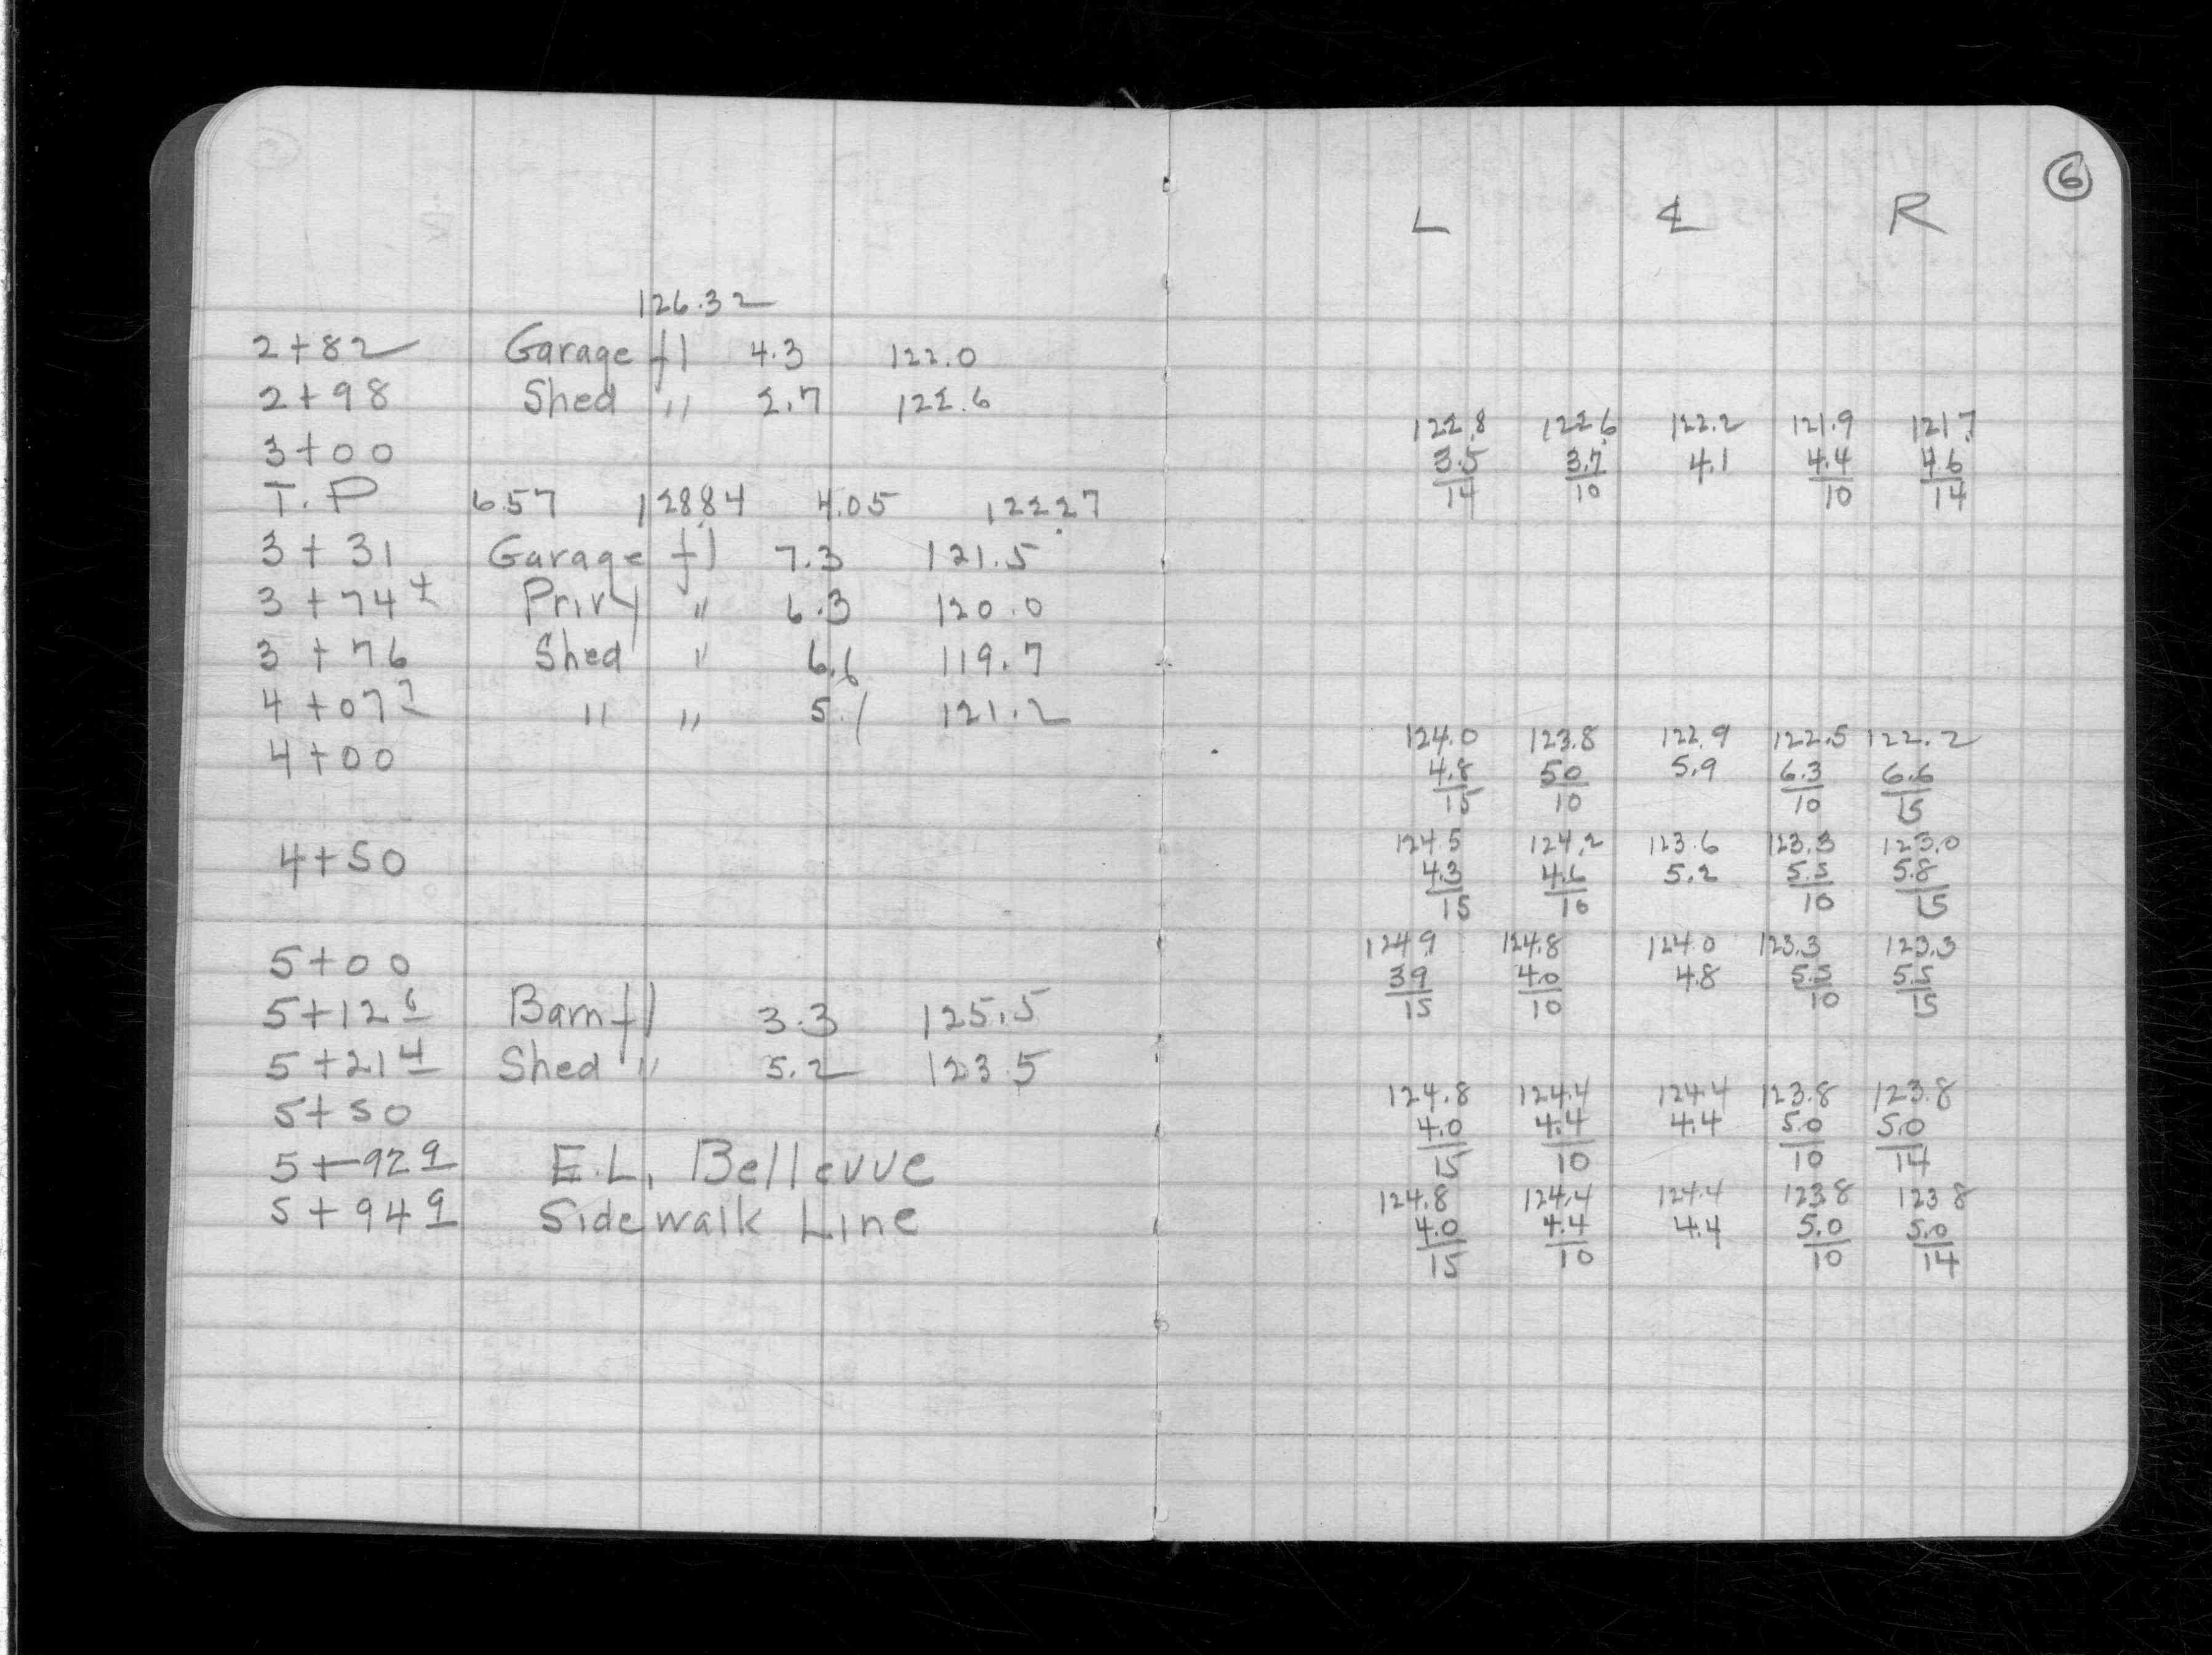 126.32
2+82 Garage fl 4.3 122.0
2+98 Shed " 2.7 122.6
3+00
T.P 6.57 128.84 4.05 122.27
3+31 Garage fl 7.3 121.5
3+74± Privy " 6.3 120.0
3+76 Shed " 6.6 119.7
4+07 " " 5.1 121.2
4+00
4+50
5+00
5+12 6 Barn fl 3.3 125.5
5+21 4 Shed " 5.2 123.5
5+50
5+92 9 E.L. Bellevue
5+94 9 Sidewalk Line
6
L ℄ R
122.8 122.6 122.2 121.9 121.7
3.5 3.7 4.1 4.4 4.6
14 10 10 14
124.0 123.8 122.9 122.5 122.2
4.8 5.0 5.9 6.3 6.6
15 10 10 15
124.5 124.2 123.6 123.3 123.0
4.3 4.6 5.2 5.5 5.8
15 10 10 15
124.9 124.8 124.0 123.3 123.3
3.9 4.0 4.8 5.5 5.5
15 10 10 15
124.8 124.4 124.4 123.8 123.8
4.0 4.4 4.4 5.0 5.0
15 10 10 14
124.8 124.4 124.4 123.8 123.8
4.0 4.4 4.4 5.0 5.0
15 10 10 14